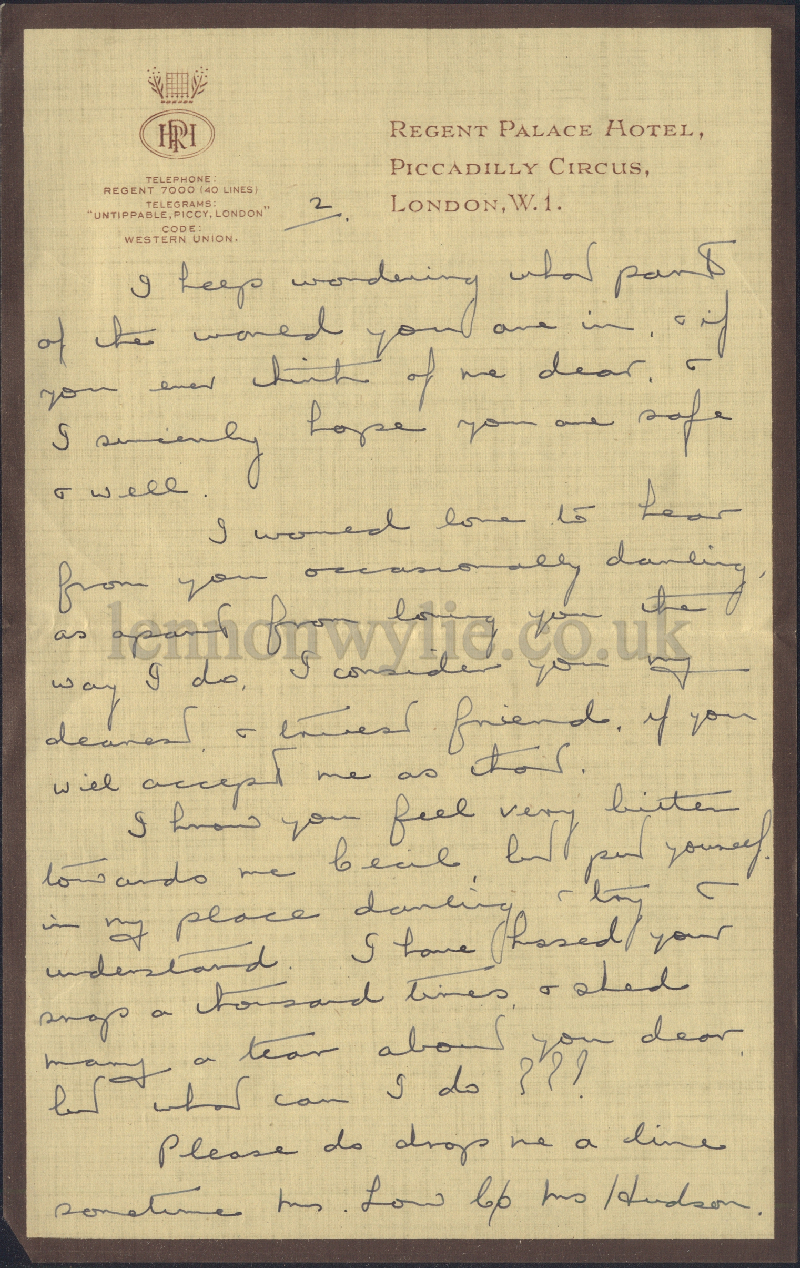 HRPH
TELEPHONE:
REGENT 7000 (40 LINES)
TELEGRAMS:
"UNTIPPABLE, PICCY, LONDON"
CODE:
WESTERN UNION.
REGENT PALACE HOTEL,
PICCADILLY CIRCUS,
LONDON, W.1.
2.
I keep wondering what part
of the world you are in, & if
you ever think of me dear, &
I sincerely hope you are safe
& well.
I would love to hear
from you occasionally darling,
as apart from loving you the
way I do, I consider you my
dearest, & truest friend, if you
will accept me as that.
I know you feel very bitter
towards me Cecil, but put yourself
in my place darling & try &
understand. I have kissed your
snap a thousand times, & shed
many a tear about you dear,
but what can I do ???
Please do drop me a line
sometime Mrs. Low C/o Mrs Hudson.
lennonwylie.co.uk